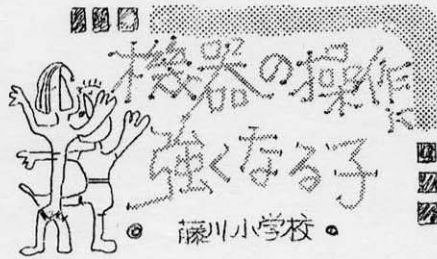 機器の操作に
強くなる子
藤川小学校